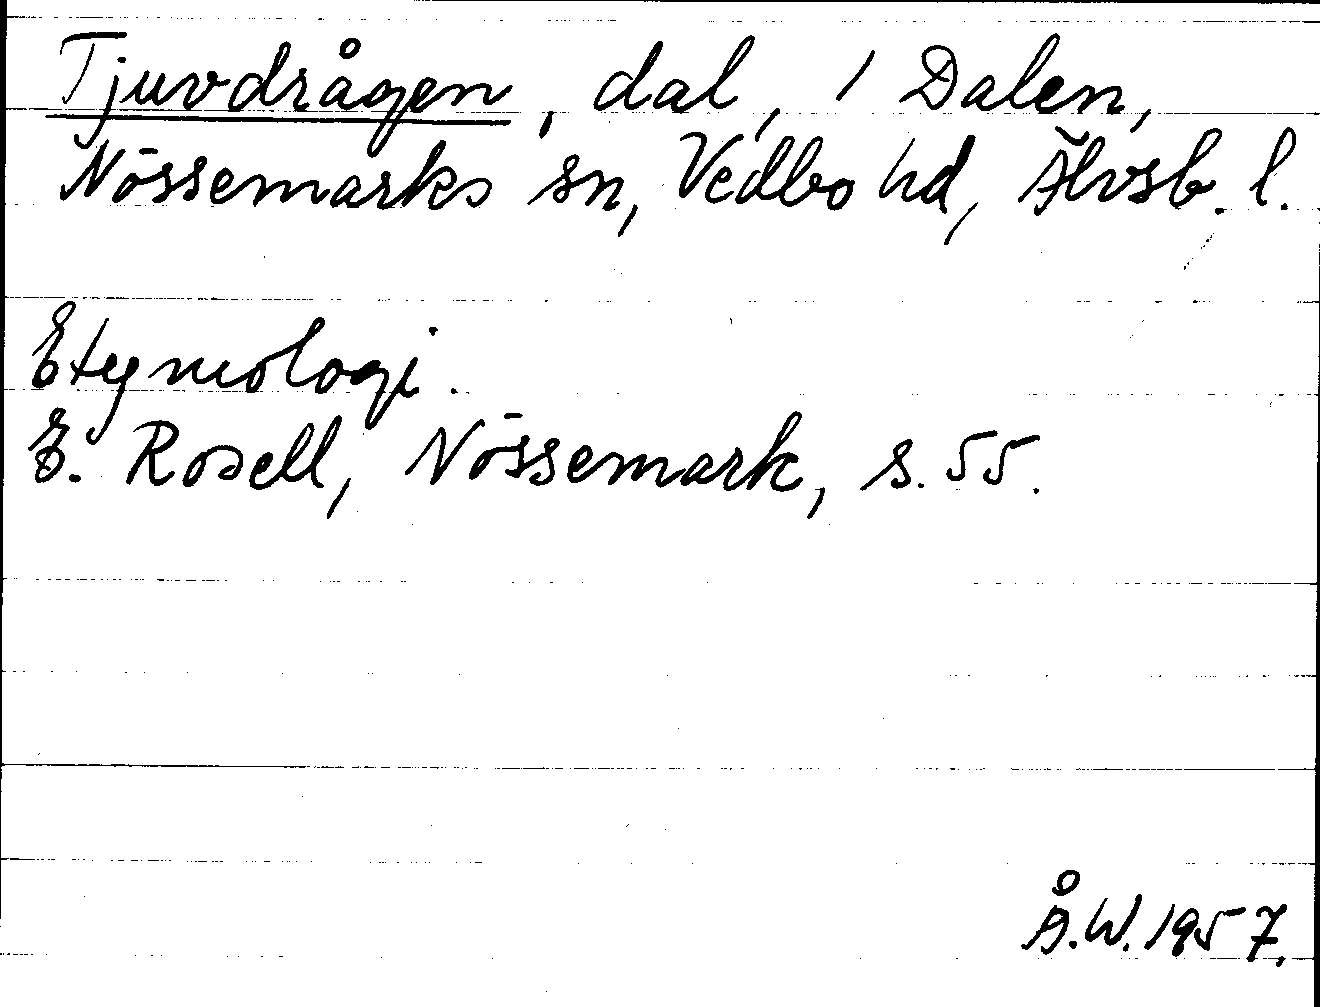 Tjuvdrågen, dal, / Dalen,
Nössemarks sn, Vedbo hd, Älvsb. l.
Etymologi.
E. Rosell, Nössemark, s. 55.
Å.W. 1957.